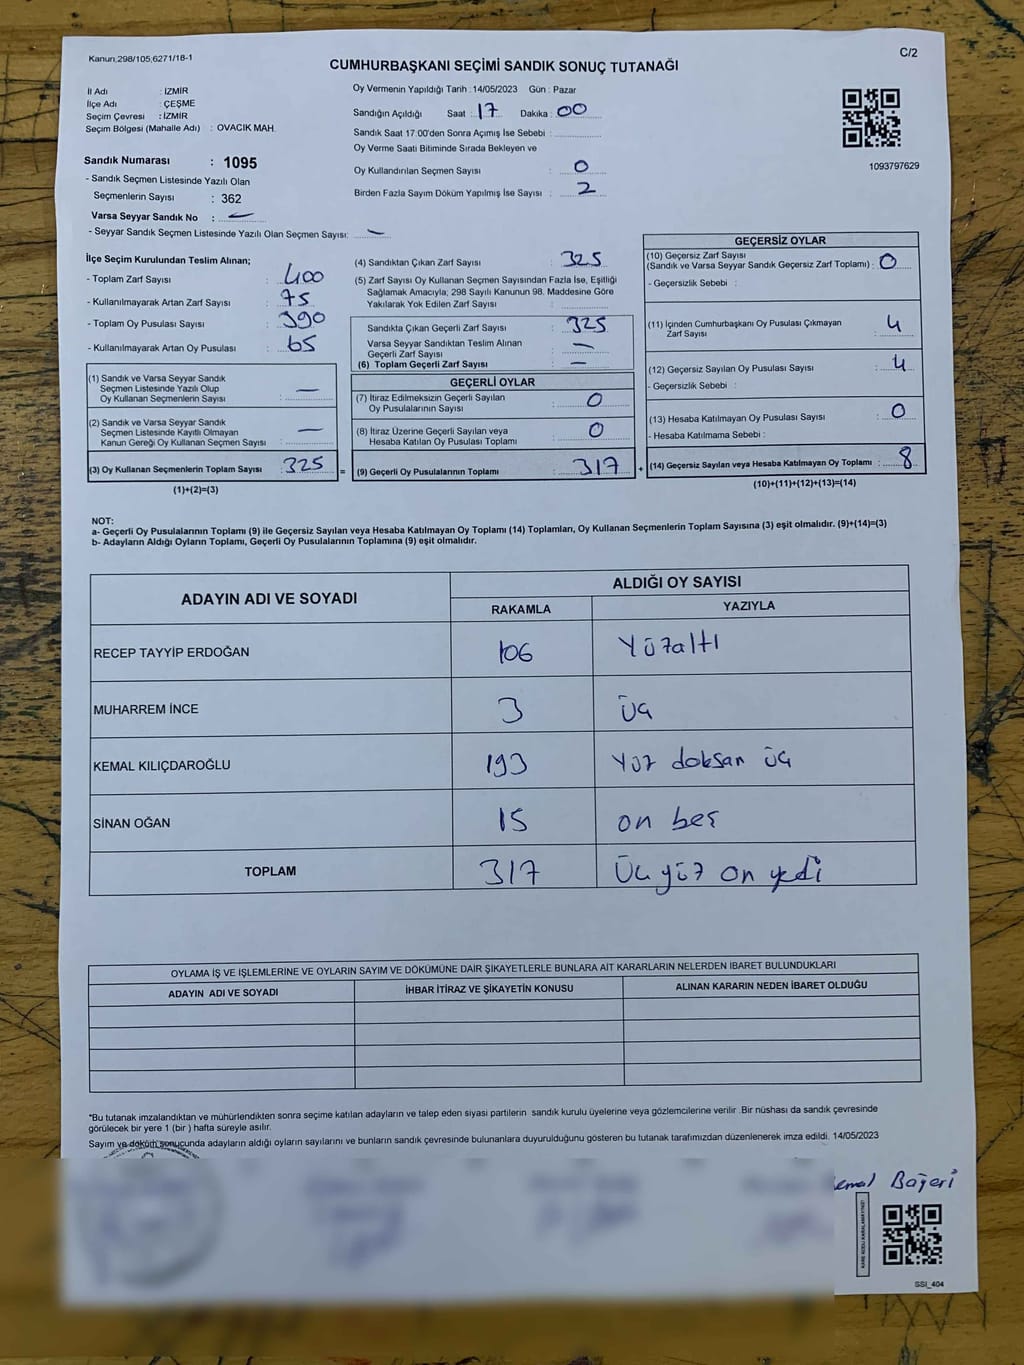 Kanun,298/105,6271/18-1
C/2
CUMHURBAŞKANI SEÇİMİ SANDIK SONUÇ TUTANAĞI
İl Adı : İZMİR
İlçe Adı : ÇEŞME
Seçim Çevresi : İZMİR
Seçim Bölgesi (Mahalle Adı) : OVACIK MAH.
Sandık Numarası : 1095
- Sandık Seçmen Listesinde Yazılı Olan
Seçmenlerin Sayısı : 362
Varsa Seyyar Sandık No : —
- Seyyar Sandık Seçmen Listesinde Yazılı Olan Seçmen Sayısı: —
Oy Vermenin Yapıldığı Tarih : 14/05/2023 Gün : Pazar
Sandığın Açıldığı Saat : 17 Dakika : 00
Sandık Saat 17:00'den Sonra Açımış İse Sebebi :
Oy Verme Saati Bitiminde Sırada Bekleyen ve
Oy Kullandırılan Seçmen Sayısı : 0
Birden Fazla Sayım Döküm Yapılmış İse Sayısı : 2
1093797629
İlçe Seçim Kurulundan Teslim Alınan;
- Toplam Zarf Sayısı : 400
- Kullanılmayarak Artan Zarf Sayısı : 75
- Toplam Oy Pusulası Sayısı : 390
- Kullanılmayarak Artan Oy Pusulası : 65
(1) Sandık ve Varsa Seyyar Sandık
Seçmen Listesinde Yazılı Olup
Oy Kullanan Seçmenlerin Sayısı : —
(2) Sandık ve Varsa Seyyar Sandık
Seçmen Listesinde Kayıtlı Olmayan
Kanun Gereği Oy Kullanan Seçmen Sayısı : —
(3) Oy Kullanan Seçmenlerin Toplam Sayısı : 325 =
(1)+(2)=(3)
(4) Sandıktan Çıkan Zarf Sayısı : 325
(5) Zarf Sayısı Oy Kullanan Seçmen Sayısından Fazla İse, Eşitliği
Sağlamak Amacıyla; 298 Sayılı Kanunun 98. Maddesine Göre
Yakılarak Yok Edilen Zarf Sayısı :
Sandıkta Çıkan Geçerli Zarf Sayısı : 325
Varsa Seyyar Sandıktan Teslim Alınan
Geçerli Zarf Sayısı : —
(6) Toplam Geçerli Zarf Sayısı : —
GEÇERLİ OYLAR
(7) İtiraz Edilmeksizin Geçerli Sayılan
Oy Pusulalarının Sayısı : 0
(8) İtiraz Üzerine Geçerli Sayılan veya
Hesaba Katılan Oy Pusulası Toplamı : 0
(9) Geçerli Oy Pusulalarının Toplamı : 317 +
GEÇERSİZ OYLAR
(10) Geçersiz Zarf Sayısı
(Sandık ve Varsa Seyyar Sandık Geçersiz Zarf Toplamı) : 0
- Geçersizlik Sebebi :
(11) İçinden Cumhurbaşkanı Oy Pusulası Çıkmayan
Zarf Sayısı : 4
(12) Geçersiz Sayılan Oy Pusulası Sayısı : 4
- Geçersizlik Sebebi :
(13) Hesaba Katılmayan Oy Pusulası Sayısı : 0
- Hesaba Katılmama Sebebi :
(14) Geçersiz Sayılan veya Hesaba Katılmayan Oy Toplamı : 8
(10)+(11)+(12)+(13)=(14)
NOT:
a- Geçerli Oy Pusulalarının Toplamı (9) ile Geçersiz Sayılan veya Hesaba Katılmayan Oy Toplamı (14) Toplamları, Oy Kullanan Seçmenlerin Toplam Sayısına (3) eşit olmalıdır. (9)+(14)=(3)
b- Adayların Aldığı Oyların Toplamı, Geçerli Oy Pusulalarının Toplamına (9) eşit olmalıdır.
ADAYIN ADI VE SOYADI
ALDIĞI OY SAYISI
RAKAMLA YAZIYLA
RECEP TAYYİP ERDOĞAN 106 Yüzaltı
MUHARREM İNCE 3 üç
KEMAL KILIÇDAROĞLU 193 Yüz doksan üç
SİNAN OĞAN 15 on beş
TOPLAM 317 Üç yüz on yedi
OYLAMA İŞ VE İŞLEMLERİNE VE OYLARIN SAYIM VE DÖKÜMÜNE DAİR ŞİKAYETLERLE BUNLARA AİT KARARLARIN NELERDEN İBARET BULUNDUKLARI
ADAYIN ADI VE SOYADI İHBAR İTİRAZ VE ŞİKAYETİN KONUSU ALINAN KARARIN NEDEN İBARET OLDUĞU
*Bu tutanak imzalandıktan ve mühürlendikten sonra seçime katılan adayların ve talep eden siyasi partilerin sandık kurulu üyelerine veya gözlemcilerine verilir .Bir nüshası da sandık çevresinde
görülecek bir yere 1 (bir ) hafta süreyle asılır.
Sayım ve döküm sonucunda adayların aldığı oyların sayılarını ve bunların sandık çevresinde bulunanlara duyurulduğunu gösteren bu tutanak tarafımızdan düzenlenerek imza edildi. 14/05/2023
KARE KODU KARALAMAYINIZ!
SSI_404